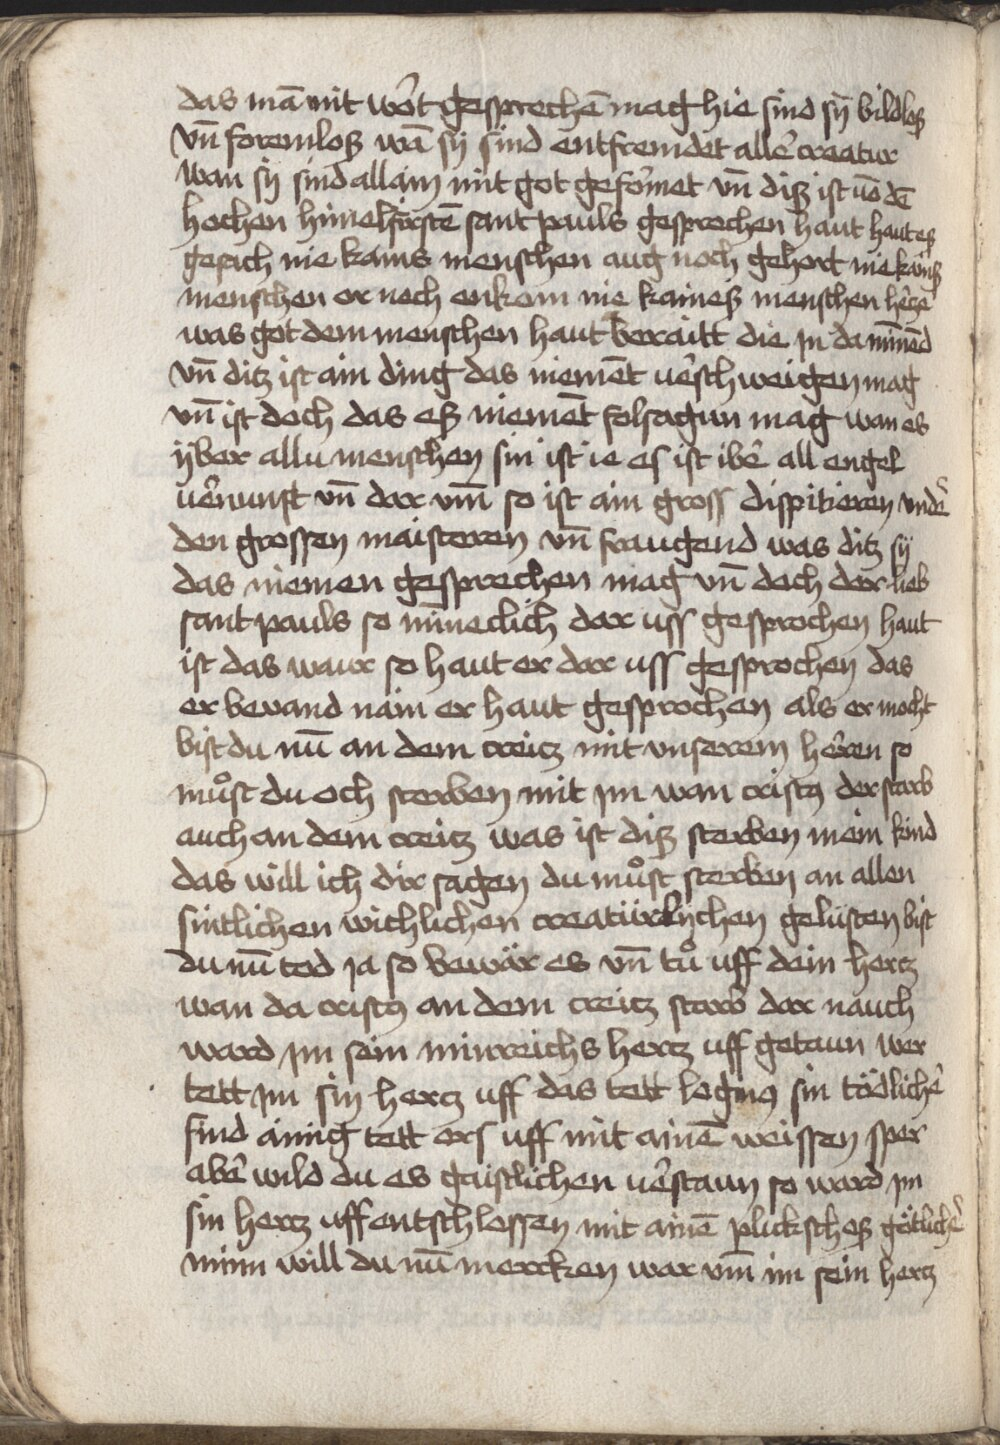 das mā mit wort gesprechē mag hie sind sy̅ bildloß
vn̄ foremloß wā sy sind entfremdet aller creatur
wan sy sind allain mit got geformet vn̄ diß ist uo dē
hochen himelfürstē sant pauls gesprochen haut haut eß
gesach nie kains menschen aug noch gehort nie kainß
menschen or noch enkom nie kaineß menschen herze
was got dem menschen haut beraitt die jn da mīnēd
vn̄ ditz ist ain ding das niemēt uerschweigen mag
vn̄ ist doch das eß niemēt folsagun mag wan es
ÿber allu menschen sin ist ie es ist iber all engel
uernunft vn̄ dar vm̄ so ist ain gross dispitieren under
den grossen maisteren vn̄ fraugend was ditz sÿ
das niemen gesprechen mag vn̄ doch der lieb
sant pauls so mīneclich dar uss gesprochen haut
ist das waur so haut er dar uss gesprochen das
er bevand nain er haut gesprochen als er mocht
bist du nū an dem creitz mit vnserem herren so
můst du och sterben mit jm wan cristꝰ der starb
auch an dem creitz was ist diß sterben mein kind
das will ich dir sagen du můst sterben an allen
sintlichen wichlichen creatürlychen gelüsten bist
du nū tod ja so bewär es vn̄ tů uff dein hertz
wan da cristꝰ an dem creitz starb dar nauch
ward jm sein minreichs hertz uff getaun wer
tett jm sin hertz uff das tett loginꝰ sin tödlicher
find ainig tett ers uff mit ainē weissen sper
aber wild du es gaistlichen uerstaun so ward jm
sin hertz uff entschlossen mit ainē plickscheß götlicher
minn will du nū mercken war vm̄ im sein hertz